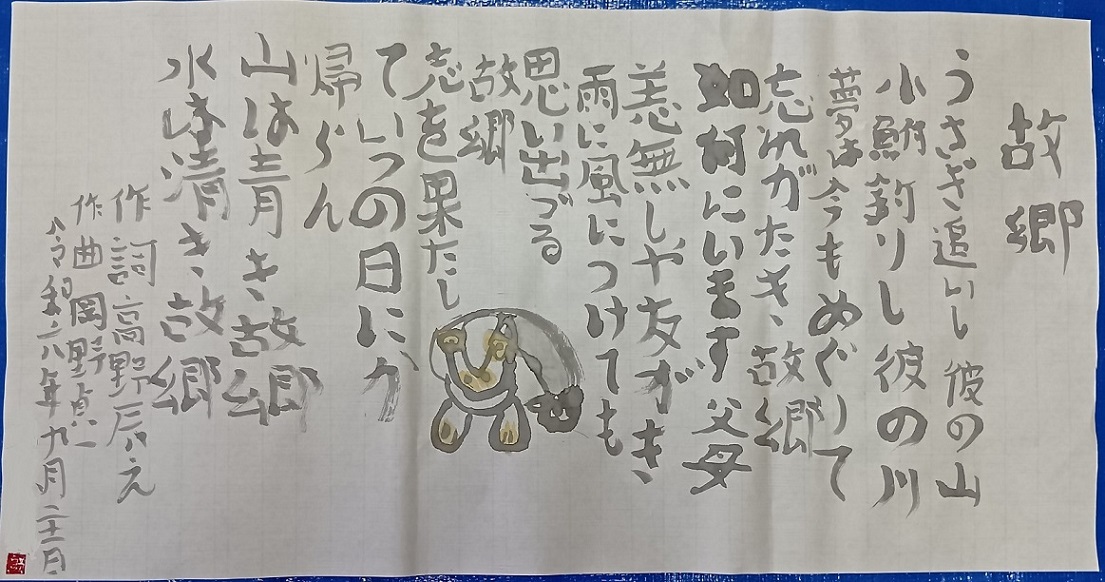 故郷
うさぎ追いし彼の山
小鮒釣りし彼の川
夢は今もめぐりて
忘れがたき、故郷
如何にいます父母
恙無しや友がき、
雨に風につけても
思い出づる
故郷
志を果たし
ていつの日にか
帰らん
山は青き、故郷
水は清き、故郷
作詞高野辰之
作曲岡野貞一
令和六年九月二十一日